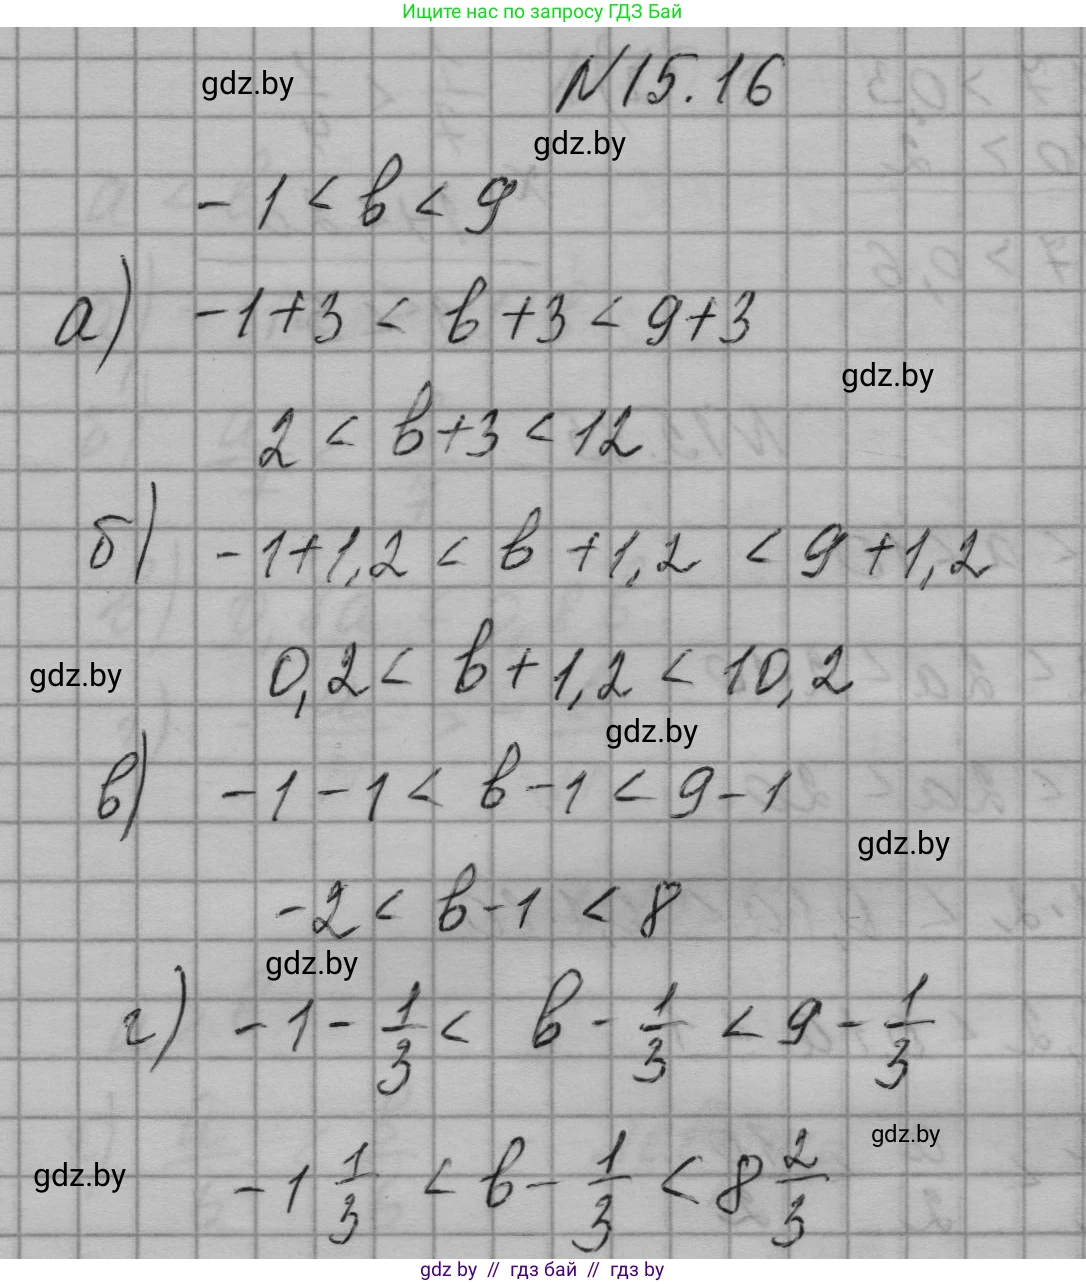 Ищите нас по запросу ГДЗ Бай
gdz.by
N15.16
gdz.by
-1 < в < 9
а) -1+3 < в+3 < 9+3
gdz.by
2 < в+3 < 12
б) -1+1,2 < в+1,2 < 9+1,2
0,2 < в+1,2 < 10,2
gdz.by
gdz.by
в) -1-1 < в-1 < 9-1
gdz.by
-2 < в-1 < 8
gdz.by
г) -1-1/3 < в-1/3 < 9-1/3
gdz.by
-1 1/3 < в-1/3 < 8 2/3
gdz.by
gdz by // гдз бай // гдз by